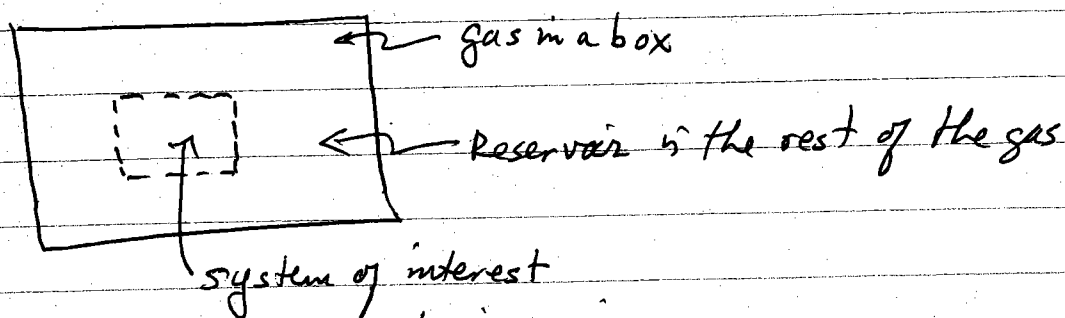 gas in a box
Reservoir is the rest of the gas
system of interest